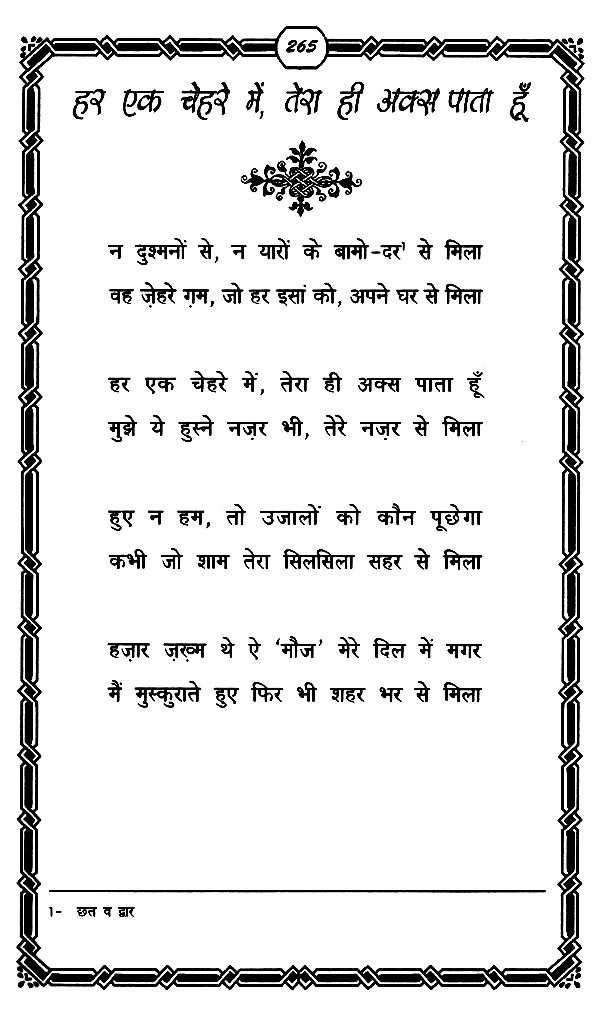 265
हर एक चेहरे में, तेरा ही अक्स पाता हूँ
न दुश्मनों से, न यारों के बामो-दर¹ से मिला
वह ज़ेहरे ग़म, जो हर इसां को, अपने घर से मिला
हर एक चेहरे में, तेरा ही अक्स पाता हूँ
मुझे ये हुस्ने नज़र भी, तेरे नज़र से मिला
हुए न हम, तो उजालों को कौन पूछेगा
कभी जो शाम तेरा सिलसिला सहर से मिला
हज़ार ज़ख़्म थे ऐ ‘मौज’ मेरे दिल में मगर
मैं मुस्कुराते हुए फिर भी शहर भर से मिला
1- छत व द्वार